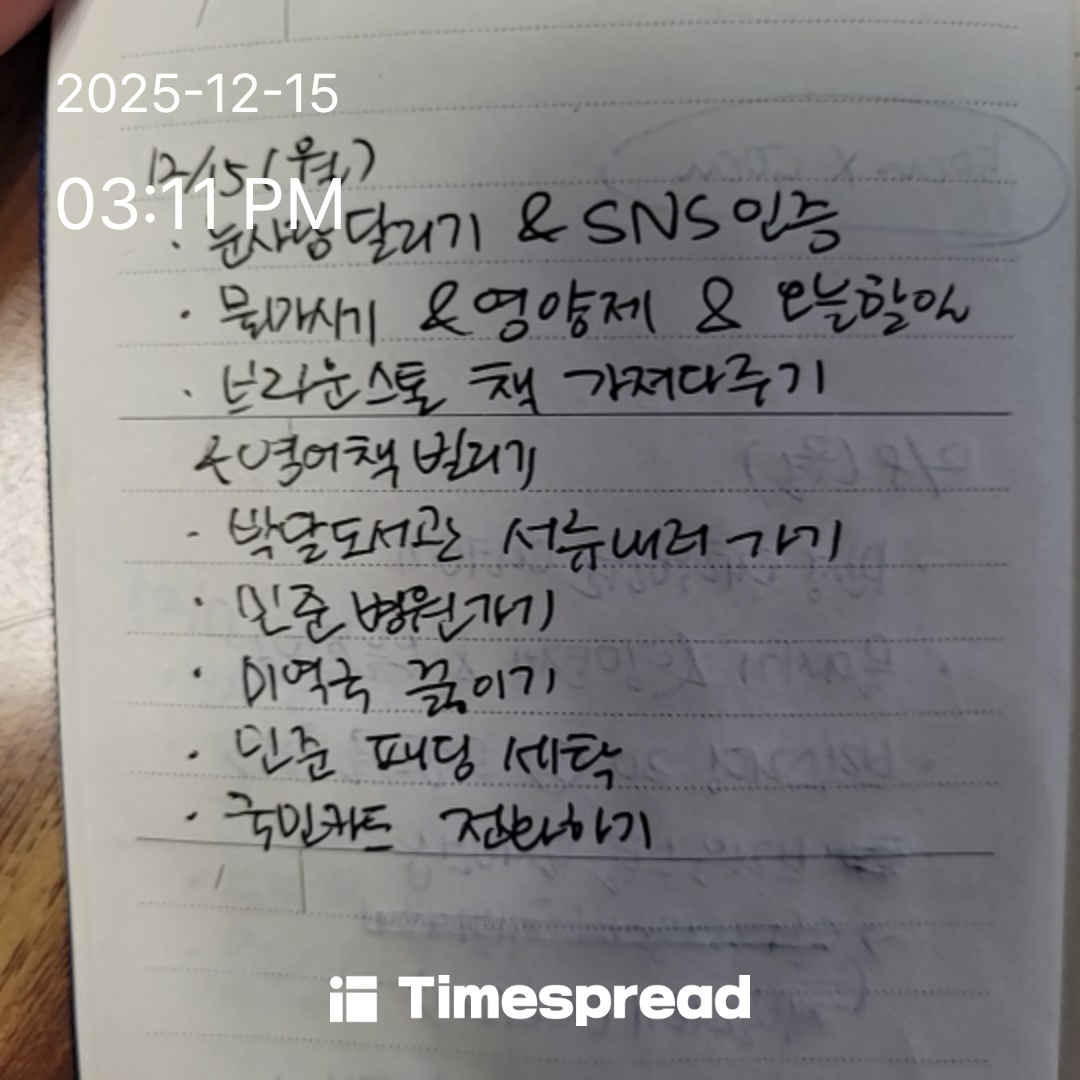 2025-12-15
12/15 (월)
03:11 PM
· 눈사람 달리기 & SNS 인증
· 물마시기 & 영양제 & 오늘할일
· 브라운스톤 책 가져다주기
& 영어책 빌리기
- 박달도서관 서류내러 가기
· 민준 병원가기
· 미역국 끓이기
· 민준 패딩 세탁
· 국민카드 전화하기
/
Timespread